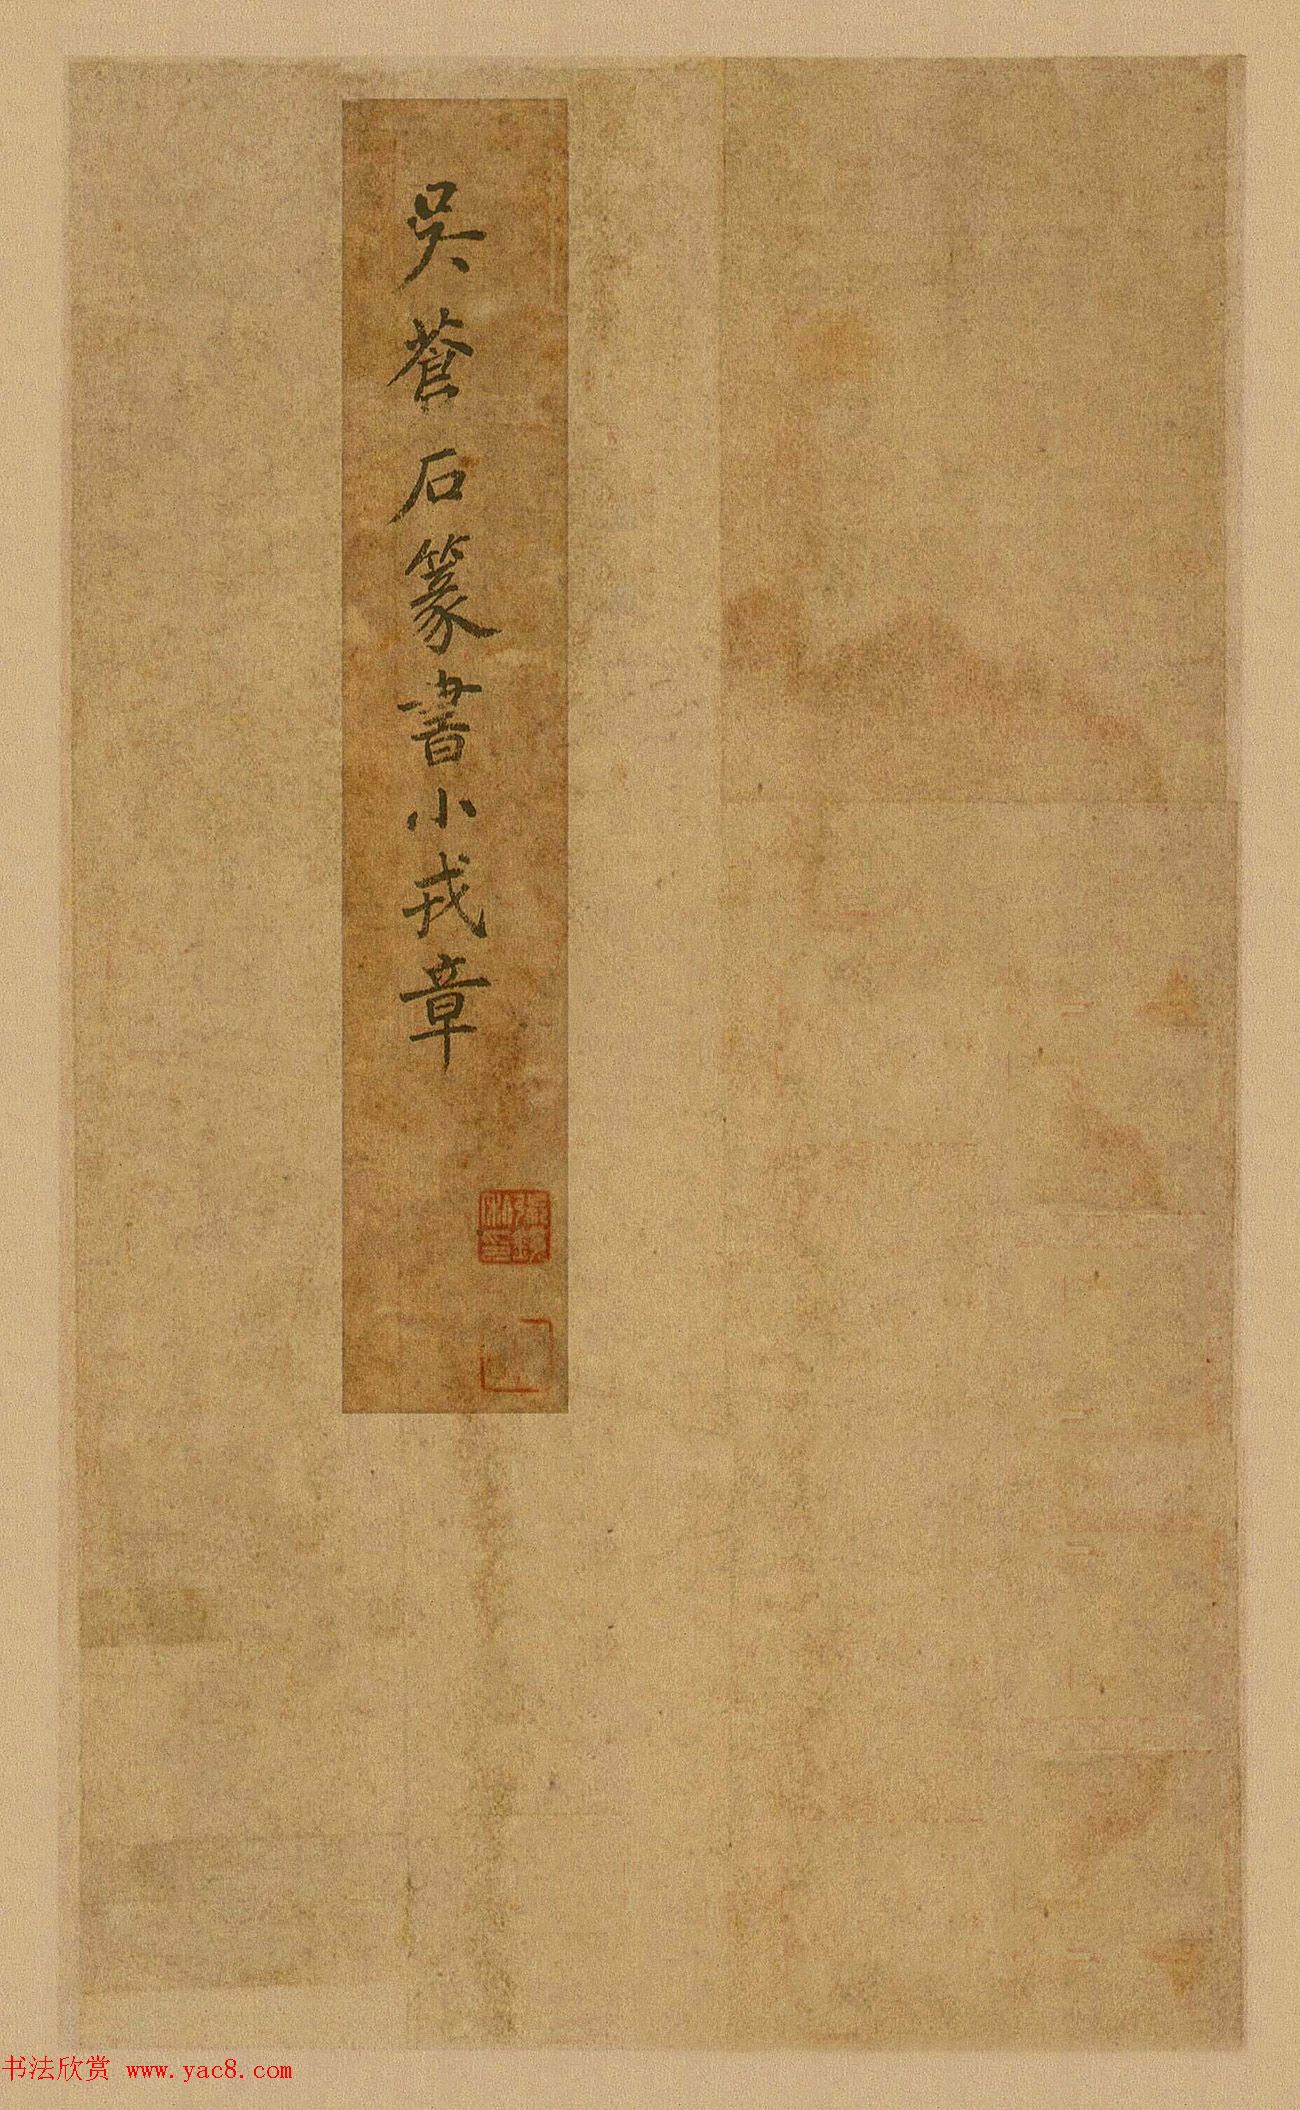 吳蒼石篆書小戎章
书法欣赏 www.yac8.com